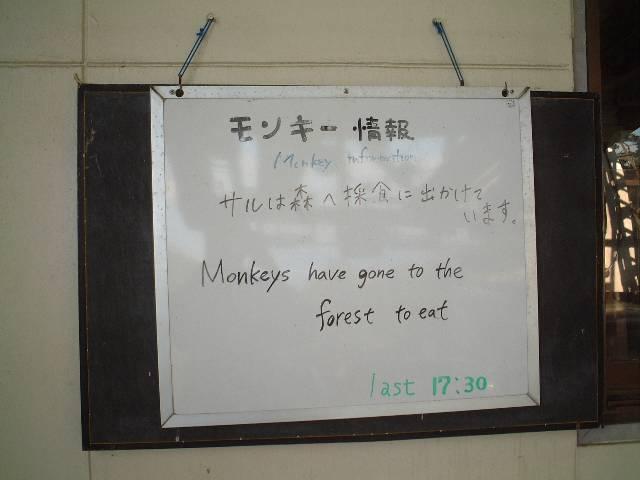 モンキー情報
Monkey information
サルは森へ採食に出かけて
います。
Monkeys have gone to the
forest to eat
last 17:30